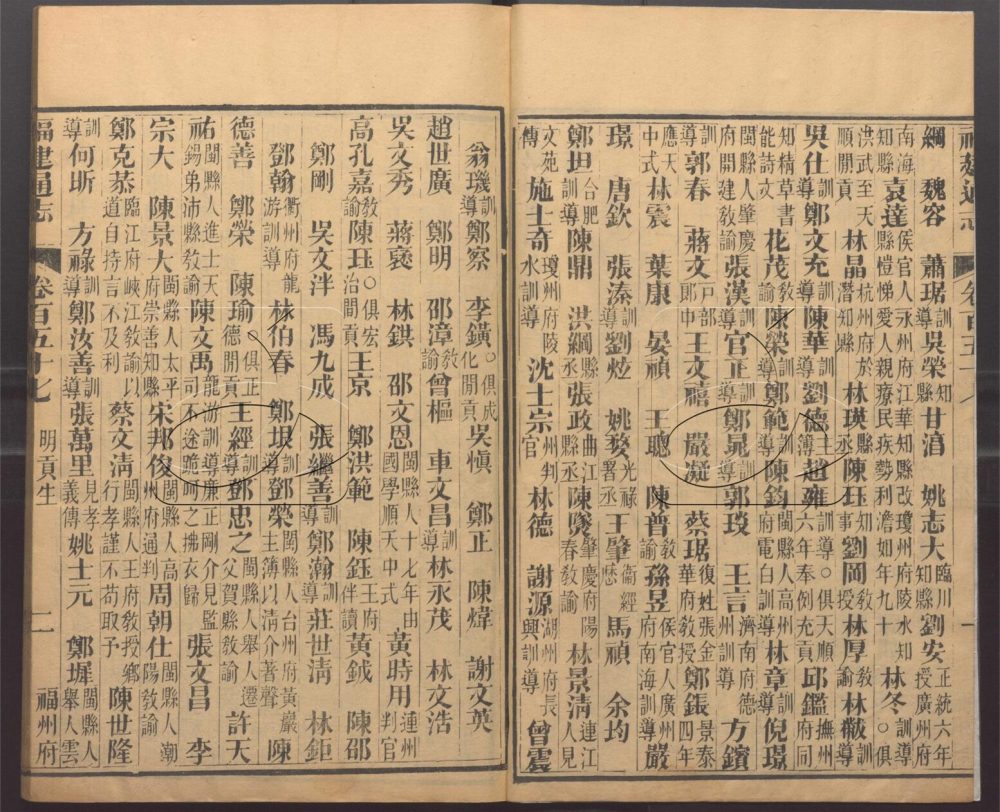 綱　魏容　蕭琚訓導吳榮知縣甘滈　姚志大臨川知縣劉安正統六年授廣州府
南海知縣袁達侯官人永州府江華知縣改瓊州府陵水知縣愷悌愛人親療民疾勢利澹如年九十林冬訓導○俱
洪武至天順閒貢林晶杭州府於潛知縣林瑛縣丞陳珏知事劉岡教授林厚教諭林黻訓導
吳仕訓導鄭文充訓導陳華　劉德主簿趙雍訓導○俱天順六年奉例充貢邱鑑撫州府同
知精草書能詩文花茂教諭陳榮訓導鄭範訓導陳鈞閩縣人高州府電白訓導林章訓導倪璟
閩縣人肇慶府開建教諭張漢訓導官正訓導鄭晁訓導郭琰　王言濟南府德州訓導方鑌
訓導郭春　蔣文戶部郎中王文禧　嚴凝　蔡琚復姓張金華府教授鄭鋹景泰四年
應天中式林震　葉康　晏頑　王聰　陳普教諭孫昱侯官人廣州府南海訓導嚴
璟　唐欽　張溱訓導劉炫　姚㜫光祿署丞王肇衞經歷馬頑　余均
鄭坦合肥訓導陳鼎　洪綱縣丞張政曲江縣丞陳隧肇慶府陽春教諭林景清連江人見
文苑傳施士奇瓊州府陵水訓導沈士宗州判官林德　謝源興湖州府長興訓導曾震
福建通志　卷百五十七　明貢生　二　福州府
翁璣訓導鄭察　李鐀○俱成化閒貢吳愼　鄭正　陳煒　謝文英
趙世廣　鄭明　邵漳教諭曾樞　車文昌訓導林永茂　林文浩
吳文秀　蔣褎　林錤　邵文恩閩縣人十七年由國學順天中式黃時用連州判官
高孔嘉教諭陳珏○俱宏治閒貢王京　鄭洪範　陳鈺王府伴讀黃鉞　陳邵
鄭剛　吳文泮　馮九成　張繼善訓導鄭瀚訓導莊世淸　林鉅
鄧翰衢州府龍游訓導林伯春　鄭垠訓導鄧榮閩縣人台州府黃巖主簿以清介著聲陳
德善　鄭榮　陳瑜○俱正德閒貢王經訓導鄧忠之閩縣人舉人遷父賀縣教諭許天
祐閩縣人進士天錫弟沛縣教諭陳文禹龍游訓導廉正剛介見監司不途跪呵之拂衣歸張文昌　李
宗大　陳景大閩縣人太平府崇善知縣宋邦俊閩縣人高州府通判周朝仕閩縣人潮陽教諭
鄭克恭臨江府峽江教諭以道自持言不及利蔡文淸閩縣人王府教授鄉行孝謹不苟取予陳世隆
訓導何昕　方祿訓導鄭汝善訓導張萬里見孝義傳姚士元　鄭墀閩縣人舉人雲